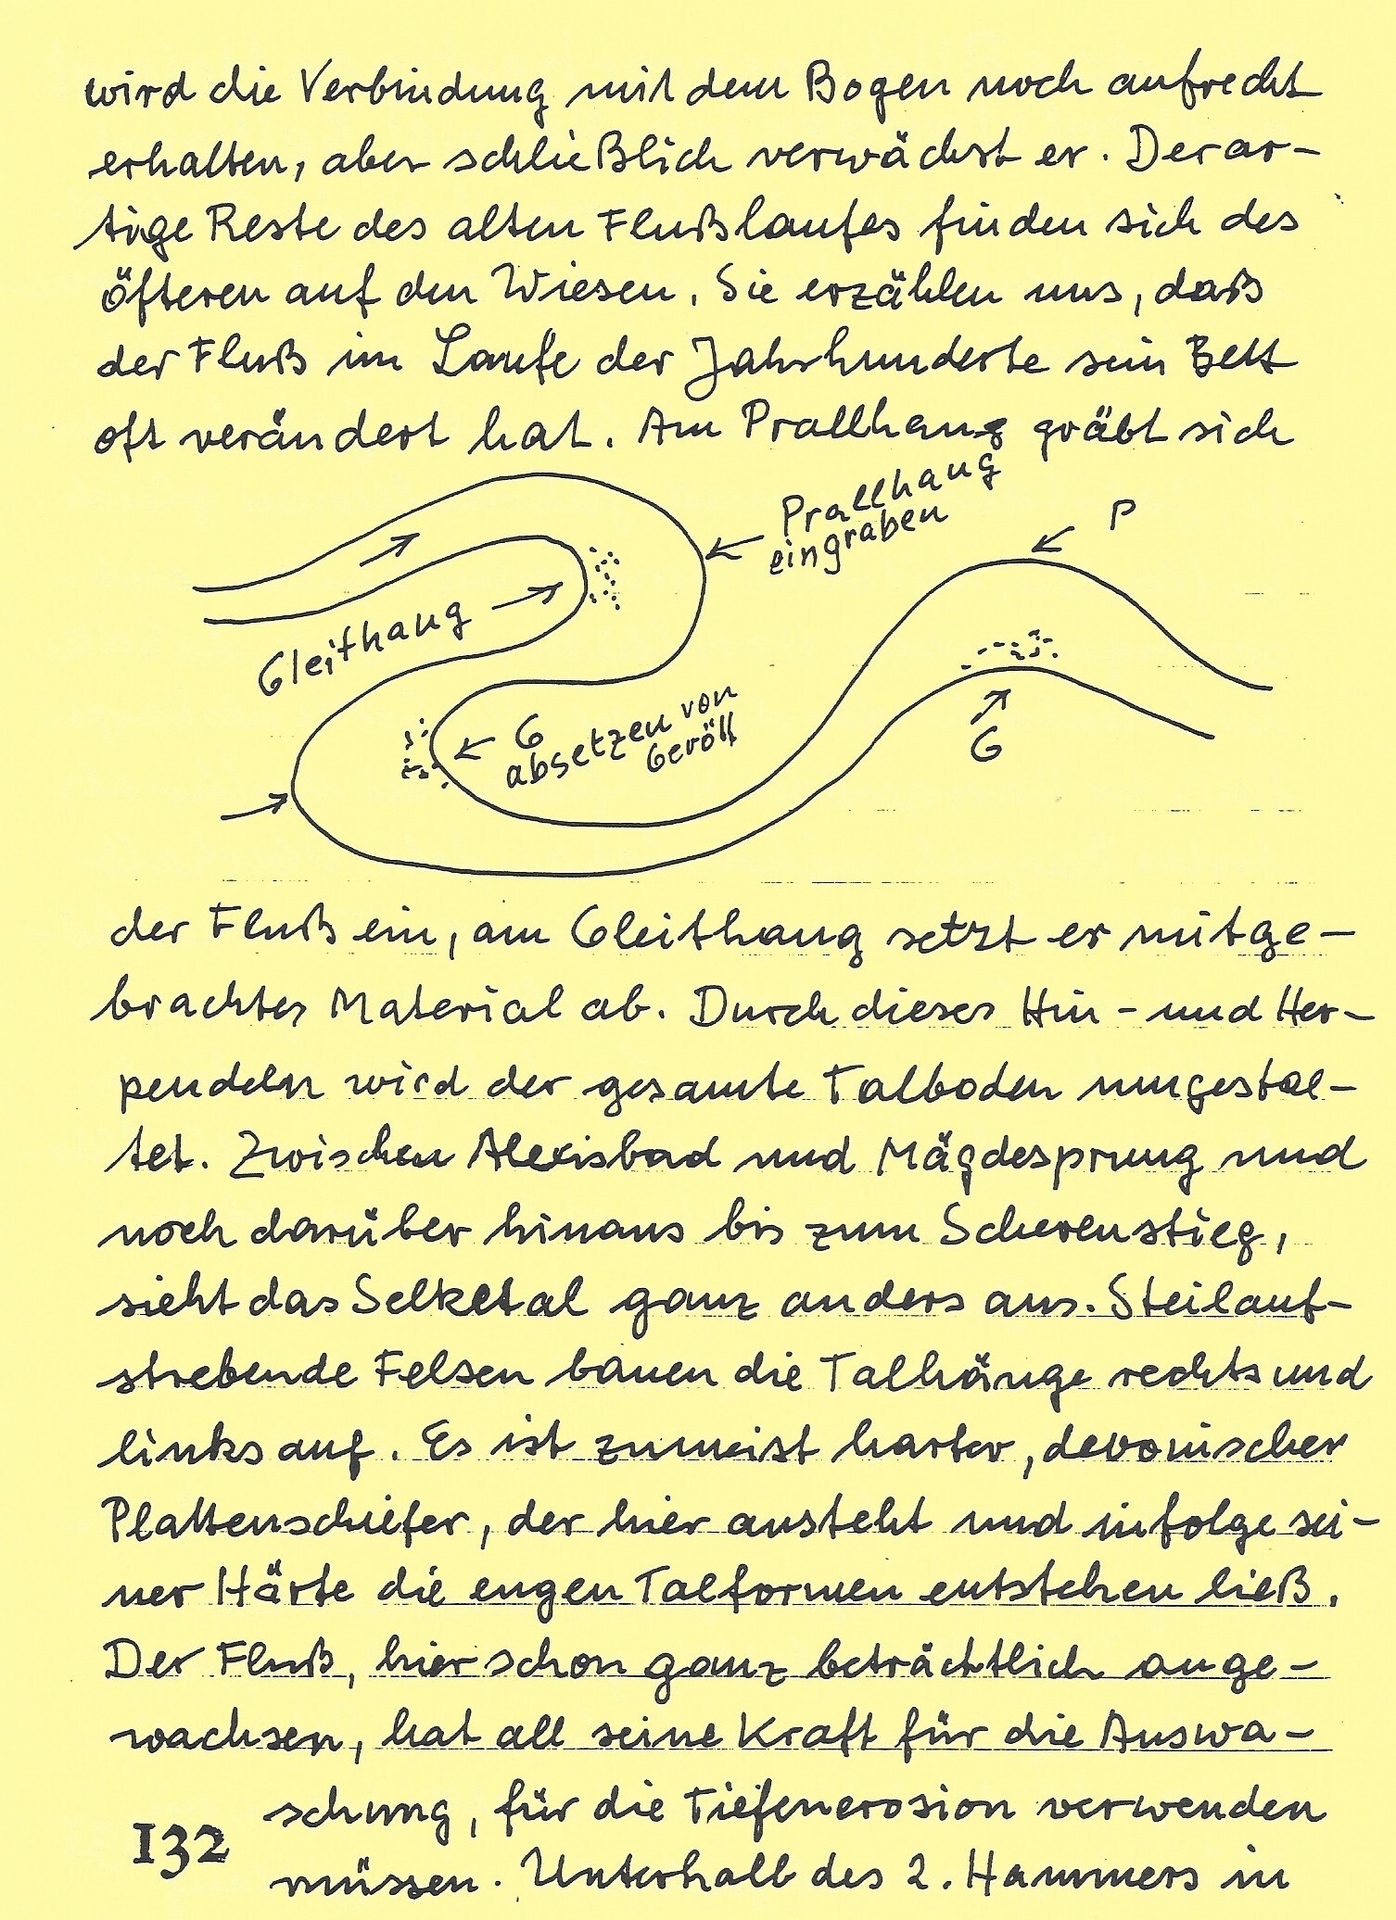 wird die Verbindung mit dem Bogen noch aufrecht
erhalten, aber schließlich verwächst er. Derar-
tige Reste des alten Flußlaufes finden sich des
öfteren auf den Wiesen. Sie erzählen uns, daß
der Fluß im Laufe der Jahrhunderte sein Bett
oft verändert hat. Am Prallhang gräbt sich
Prallhang
eingraben
P
Gleithang
G
absetzen von
Geröll
G
der Fluß ein, am Gleithang setzt er mitge-
brachtes Material ab. Durch dieses Hin- und Her-
pendeln wird der gesamte Talboden umgestal-
tet. Zwischen Alexisbad und Mägdesprung und
noch darüber hinaus bis zum Scherenstieg,
sieht das Selketal ganz anders aus. Steilauf-
strebende Felsen bauen die Talhänge rechts und
links auf. Es ist zumeist harter, devonischer
Plattenschiefer, der hier ansteht und infolge sei-
ner Härte die engen Talformen entstehen ließ.
Der Fluß, hier schon ganz beträchtlich ange-
wachsen, hat all seine Kraft für die Auswa-
schung, für die Tiefenerosion verwenden
132
müssen. Unterhalb des 2. Hammers in